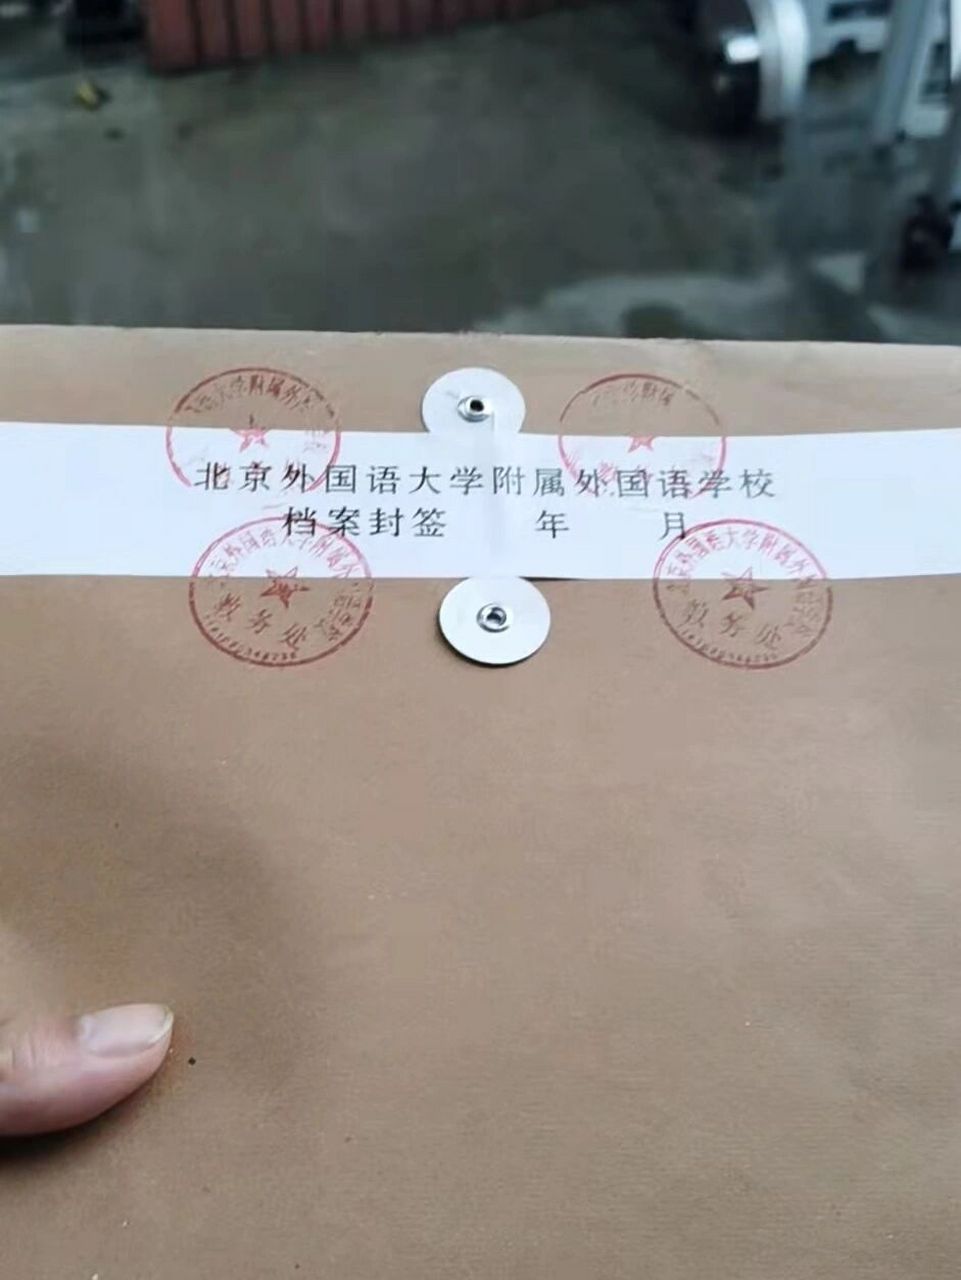 语大学附属外
大学附属
北京外国语大学附属外国语学校
档案封签 年 月
北京外国语大学附属外国语学校
教务处
北京外国语大学附属外国语学校
教务处